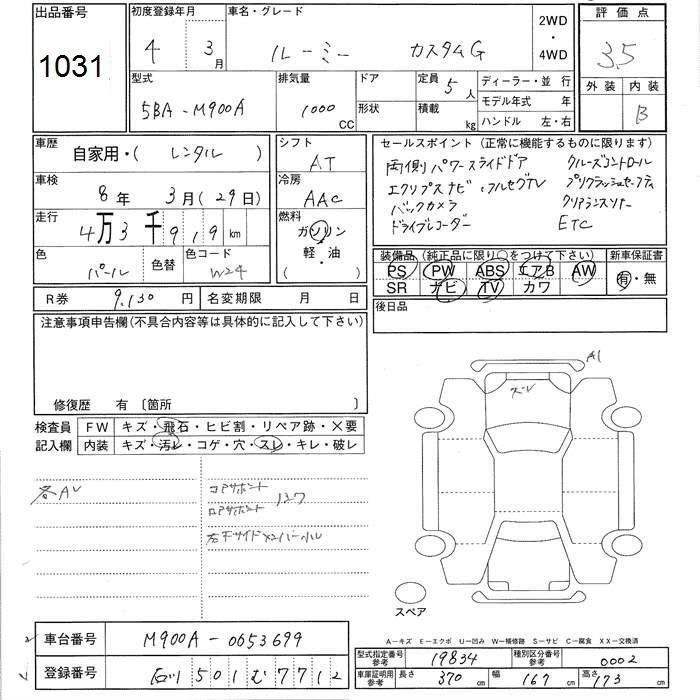 出品番号
1031
初度登録年月
4 3月
車名・グレード
ルーミー カスタムG
2WD
・
4WD
評価点
3.5
外装 内装
B
型式
5BA-M900A
排気量
1000 CC
ドア
形状
定員 5人
積載 kg
ディーラー・並行
モデル年式 年
ハンドル 左・右
車歴
自家用・( レンタル )
車検
8年 3月(29日)
走行
4万3千919km
色
パール
色替
色コード
W24
シフト
AT
冷房
AAC
燃料
ガソリン
軽・油
( )
セールスポイント(正常に機能するものに限ります)
両側パワースライドドア クルーズコントロール
エクリプスナビ・フルセグTV プリクラッシュセーフティ
バックカメラ クリアランスソナー
ドライブレコーダー ETC
装備品(純正品に限り○をつけて下さい)
PS PW ABS エアB AW
SR ナビ TV カワ
新車保証書
有・無
R券 9,130円
名変期限 月 日
後日品
注意事項申告欄(不具合内容等は具体的に記入して下さい)
修復歴 有〔箇所 〕
検査員
記入欄
FW キズ・飛石・ヒビ割・リペア跡・×要
内装 キズ・汚レ・コゲ・穴・スレ・キレ・破レ
各AU
コアサポート
ロアサポート
左下サイドメンバー小ル
A1
ズレ
スペア
A-キズ E-エクボ U-凹み W-補修跡 S-サビ C-腐食 XX-交換済
車台番号 M900A-0653699
登録番号 石川 501 む 7712
型式指定番号
参考
19834
種別区分番号
参考
0002
車庫証明用
参考
長さ 370cm 幅 167cm 高さ 173cm